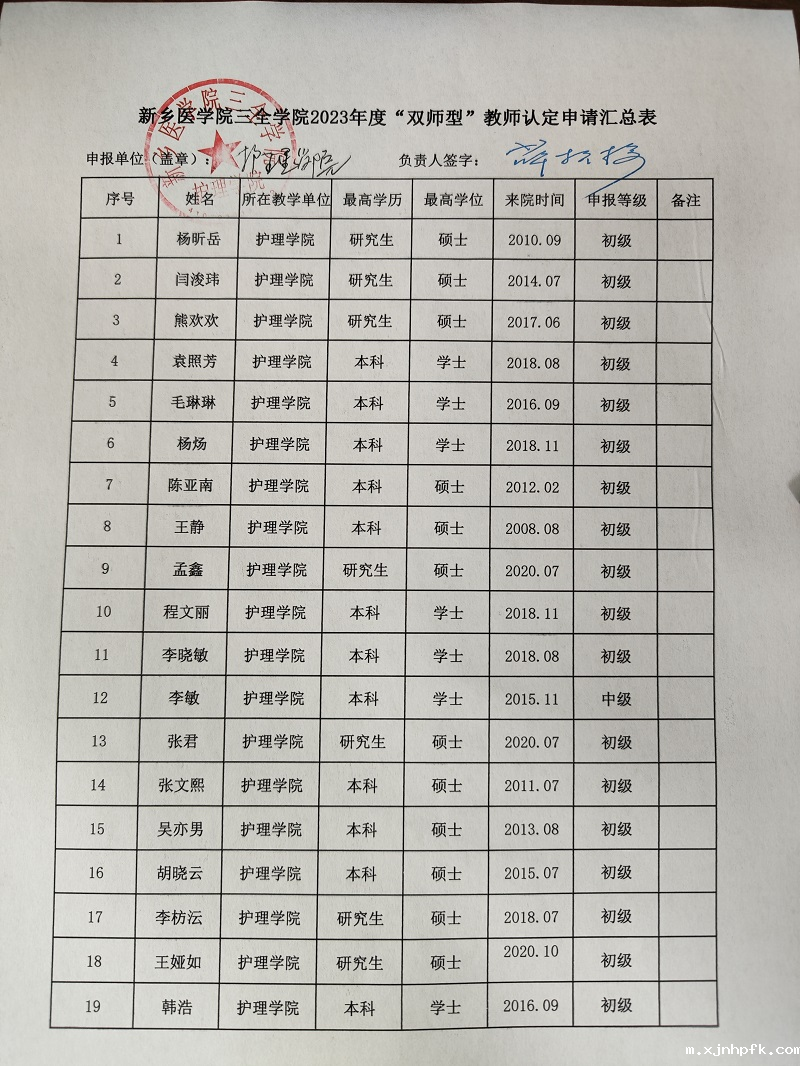 新乡医学院三全学院2023年度“双师型”教师认定申请汇总表
申报单位（盖章）：护理学院 负责人签字：
新乡医学院三全学院
护理学院
序号 姓名 所在教学单位 最高学历 最高学位 来院时间 申报等级 备注
1 杨昕岳 护理学院 研究生 硕士 2010.09 初级
2 闫浚玮 护理学院 研究生 硕士 2014.07 初级
3 熊欢欢 护理学院 研究生 硕士 2017.06 初级
4 袁照芳 护理学院 本科 学士 2018.08 初级
5 毛琳琳 护理学院 本科 学士 2016.09 初级
6 杨炀 护理学院 本科 学士 2018.11 初级
7 陈亚南 护理学院 本科 硕士 2012.02 初级
8 王静 护理学院 本科 硕士 2008.08 初级
9 孟鑫 护理学院 研究生 硕士 2020.07 初级
10 程文丽 护理学院 本科 学士 2018.11 初级
11 李晓敏 护理学院 本科 学士 2018.08 初级
12 李敏 护理学院 本科 学士 2015.11 中级
13 张君 护理学院 研究生 硕士 2020.07 初级
14 张文熙 护理学院 本科 硕士 2011.07 初级
15 吴亦男 护理学院 本科 硕士 2013.08 初级
16 胡晓云 护理学院 本科 硕士 2015.07 初级
17 李枋沄 护理学院 研究生 硕士 2018.07 初级
18 王娅如 护理学院 研究生 硕士 2020.10 初级
19 韩浩 护理学院 本科 学士 2016.09 初级
m.xjnhpfk.com